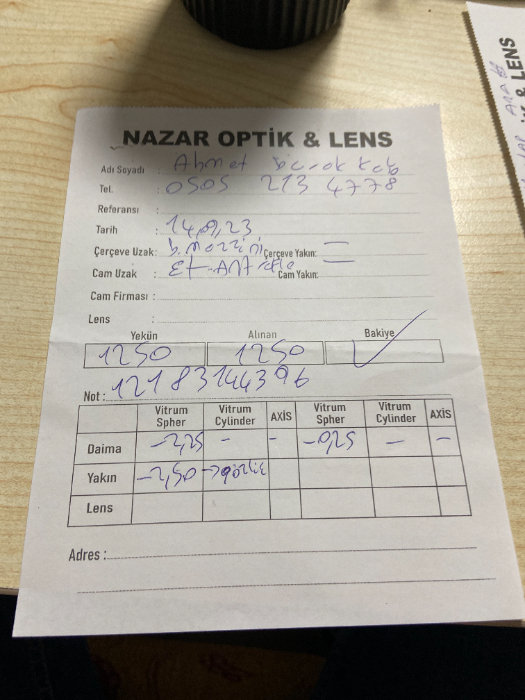 NAZAR OPTİK & LENS
Adı Soyadı : Ahmet
Tel. : 0505 213 4778
Referansı :
Tarih : 14,09,23
Çerçeve Uzak: Çerçeve Yakın:
Cam Uzak : Cam Yakın:
Cam Firması :
Lens :
Yekün Alınan Bakiye
1250 1250
Not : 12183144396
Vitrum Spher Vitrum Cylinder AXİS Vitrum Spher Vitrum Cylinder AXİS
Daima -2,25 - - -0,25 - -
Yakın -2,50
Lens
Adres :
& LENS